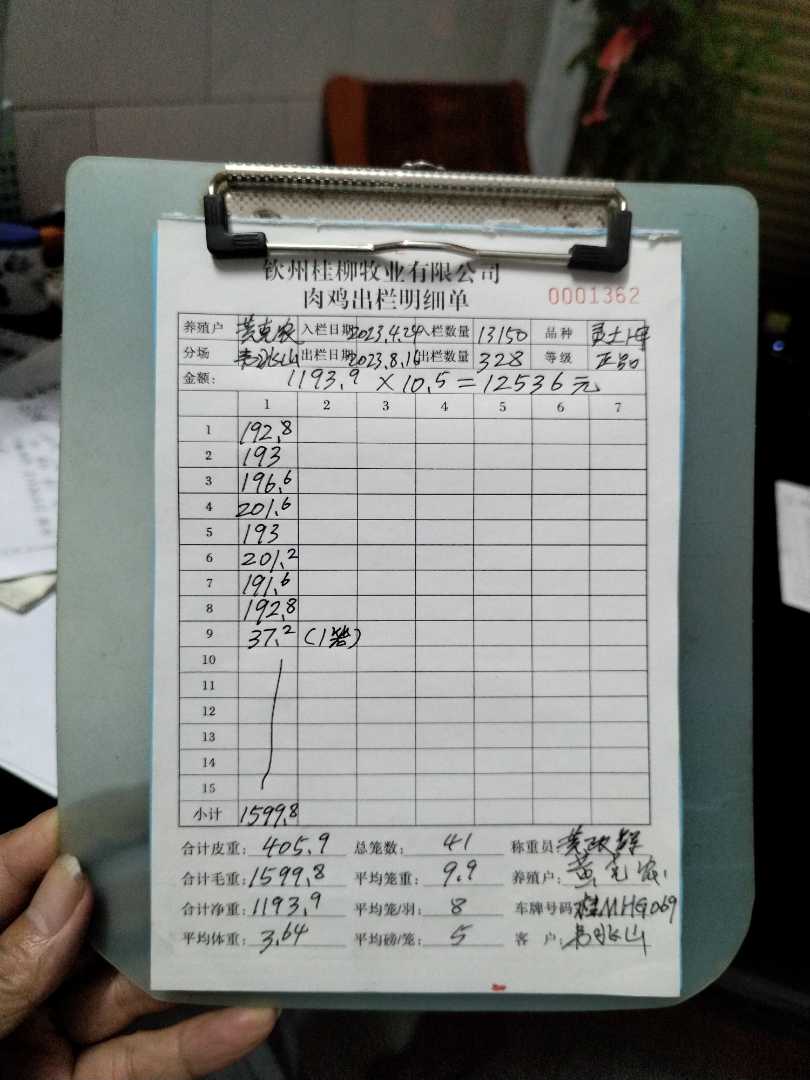 钦州桂柳牧业有限公司
肉鸡出栏明细单 0001362
养殖户 黄克农 入栏日期 2023.4.24 入栏数量 13150 品种
分场 出栏日期 2023.8.16 出栏数量 328 等级 正品
金额: 1193.9 × 10.5 = 12536元
1 2 3 4 5 6 7
1 192.8
2 193
3 196.6
4 201.6
5 193
6 201.2
7 191.6
8 192.8
9 37.2 (1笼)
10
11
12
13
14
15
小计 1599.8
合计皮重: 405.9 总笼数: 41 称重员:
合计毛重: 1599.8 平均笼重: 9.9 养殖户: 黄克农
合计净重: 1193.9 平均笼/羽: 8 车牌号码: 桂MHG069
平均体重: 3.64 平均磅/笼: 5 客户: